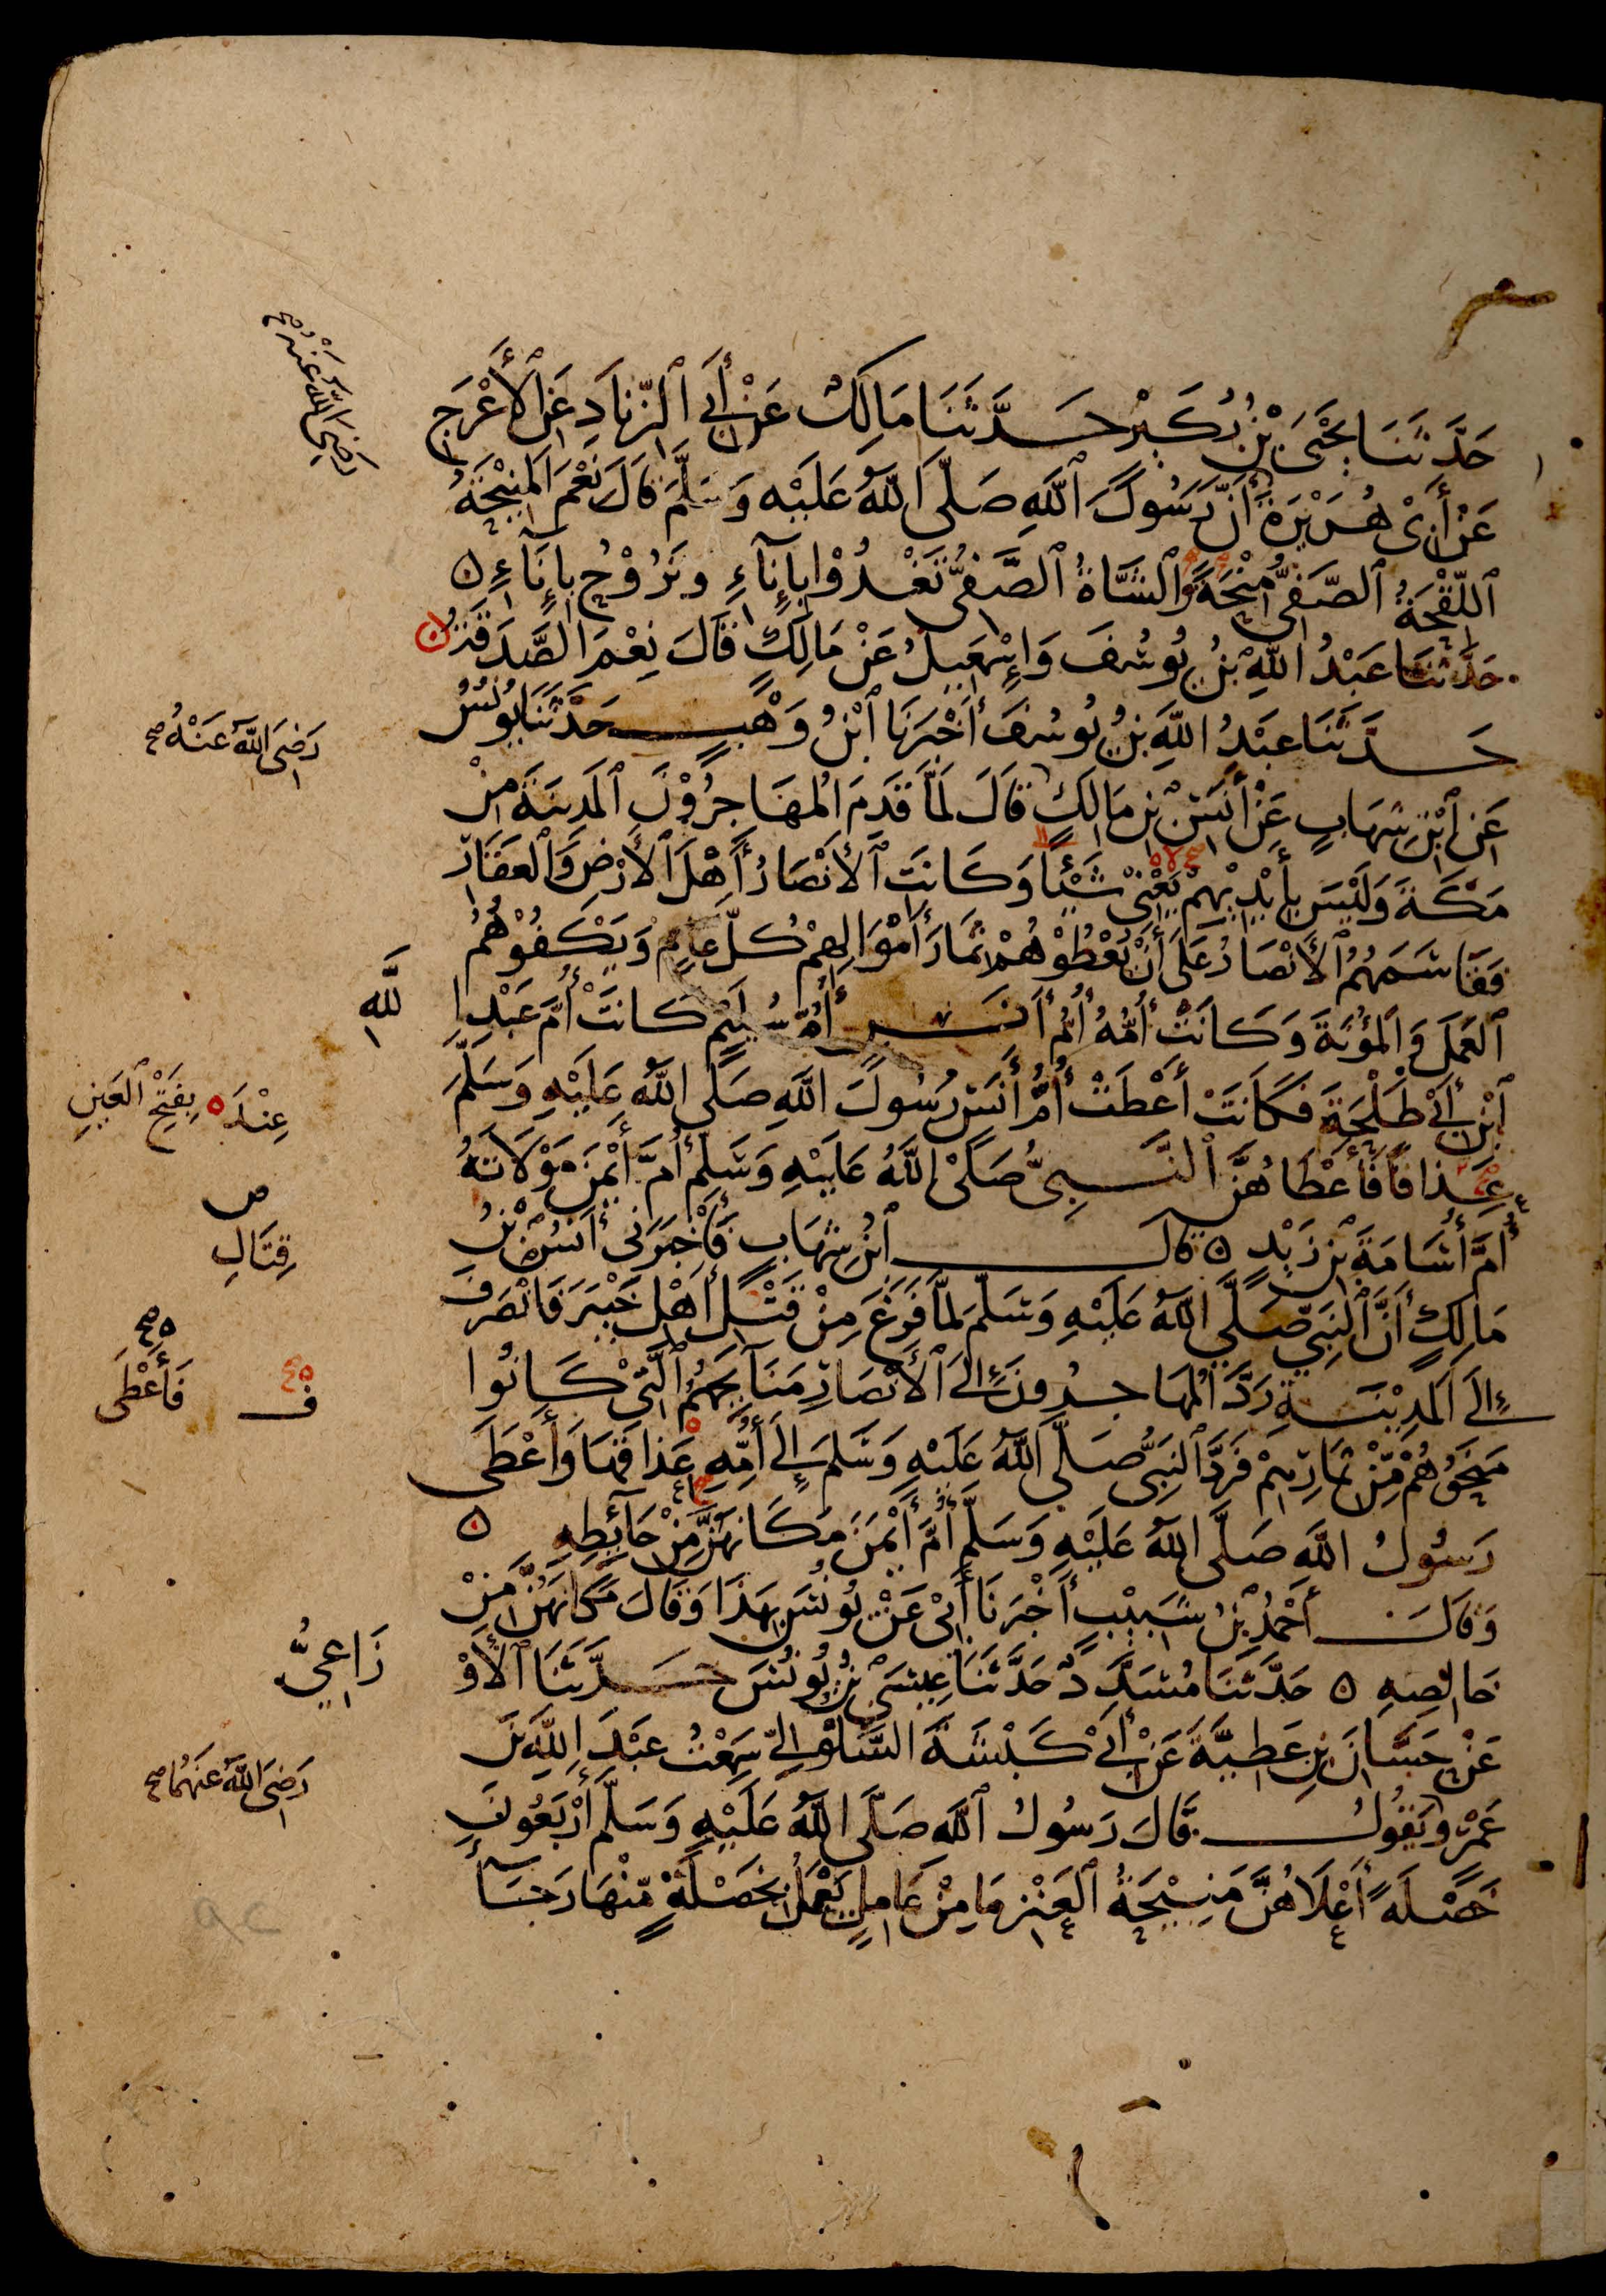 حَدَّثَنَا يَحْيَى بْنُ بُكَيْرٍ حَدَّثَنَا مَالِكٌ عَنْ أَبِي ٱلزِّنَادِ عَنِ ٱلْأَعْرَجِ
رَضِيَ اللَّهُ عَنْهُ صح
عَنْ أَبِي هُرَيْرَةَ أَنَّ رَسُولَ ٱللَّهِ صَلَّى اللَّهُ عَلَيْهِ وَسَلَّمَ قَالَ نِعْمَ الْمَنِيحَةُ
ٱللِّقْحَةُ ٱلصَّفِيُّ مِنْحَةً وَٱلشَّاةُ ٱلصَّفِيُّ تَغْدُوْا بِإِنَاءٍ وَتَرُوْحُ بِإِنَاءٍ ۵
حَدَّثَنَا عَبْدُ اللَّهِ بْنُ يُوسُفَ وَإِسْمَعِيلُ عَنْ مَالِكٍ قَالَ نِعْمَ الصَّدَقَةُ
حَدَّثَنَا عَبْدُ اللَّهِ بْنُ يُوسُفَ أَخْبَرَنَا ٱبْنُ وَهْبٍ حَدَّثَنَا يُونُسُ
عَنِ ٱبْنِ شِهَابٍ عَنْ أَنَسِ بْنِ مَالِكٍ قَالَ لَمَّا قَدِمَ الْمُهَاجِرُوْنَ ٱلْمَدِينَةَ مِنْ
رَضِيَ اللَّهُ عَنْهُ صح
مَكَّةَ وَلَيْسَ بِأَيْدِيْهِمْ يَعْنِيْ شَيْئًا وَكَانَتِ ٱلْأَنْصَارُ أَهْلَ ٱلْأَرْضِ وَٱلْعَقَارِ
فَقَاسَمَهُمُ ٱلْأَنْصَارُ عَلَى أَنْ يُعْطُوْهُمْ ثِمَارَ أَمْوَالِهِمْ كُلَّ عَامٍ وَيَكْفُوْهُمُ
ٱلْعَمَلَ وَٱلْمَؤُنَةَ وَكَانَتْ أُمُّهُ أُمُّ أَنَسٍ أُمُّ سُلَيْمٍ كَانَتْ أُمَّ عَبْدِ ا
للَّهِ
ٱبْنِ أَبِيْ طَلْحَةَ فَكَانَتْ أَعْطَتْ أُمُّ أَنَسٍ رَسُولَ اللَّهِ صَلَّى اللَّهُ عَلَيْهِ وَسَلَّمَ
عِنْدَ ۵ بِفَتْحِ ٱلْعَيْنِ
عِذَاقًا فَأَعْطَاهُنَّ ٱلنَّبِيُّ صَلَّى اللَّهُ عَلَيْهِ وَسَلَّمَ أُمَّ أَيْمَنَ مَوْلَاتَهُ
أُمَّ أُسَامَةَ بْنِ زَيْدٍ ۵ قَالَ ٱبْنُ شِهَابٍ فَأَخْبَرَنِي أَنَسُ بْنُ
مَالِكٍ أَنَّ ٱلنَّبِيَّ صَلَّى اللَّهُ عَلَيْهِ وَسَلَّمَ لَمَّا فَرَغَ مِنْ قَتْلِ أَهْلِ خَيْبَرَ فَانْصَرَفَ
ص
قِتَالِ
إِلَى الْمَدِيْنَةِ رَدَّ الْمُهَاجِرُونَ إِلَى ٱلْأَنْصَارِ مَنَائِحَهُمُ ٱلَّتِيْ كَانُوا
مَنَحُوْهُمْ مِنْ ثِمَارِهِمْ فَرَدَّ ٱلنَّبِيُّ صَلَّى اللَّهُ عَلَيْهِ وَسَلَّمَ إِلَى أُمِّهِ عِذَاقَهَا وَأَعْطَى
ف فَأَعْطَى ۵ صح
رَسُولُ اللَّهِ صَلَّى اللَّهُ عَلَيْهِ وَسَلَّمَ أُمَّ أَيْمَنَ مَكَانَهُنَّ مِنْ حَآئِطِهِ ۵
وَقَالَ أَحْمَدُ بْنُ شَبِيْبٍ أَخْبَرَنَا أَبِيْ عَنْ يُونُسَ بِهَذَا وَقَالَ مَكَانَهُنَّ مِنْ
خَالِصِهِ ۵ حَدَّثَنَا مُسَدَّدٌ حَدَّثَنَا عِيسَى بْنُ يُونُسَ حَدَّثَنَا ٱلْأَوْ
زَاعِيُّ
عَنْ حَسَّانَ بْنِ عَطِيَّةَ عَنْ أَبِيْ كَبْشَةَ السَّلُولِيِّ سَمِعْتُ عَبْدَ اللَّهِ بْنَ
عَمْرٍو يَقُولُ قَالَ رَسُولُ ٱللَّهِ صَلَّى اللَّهُ عَلَيْهِ وَسَلَّمَ أَرْبَعُونَ
رَضِيَ اللَّهُ عَنْهُمَا صح
خَصْلَةً أَعْلَاهُنَّ مَنِيْحَةُ ٱلْعَنْزِ مَا مِنْ عَامِلٍ يَعْمَلُ بِخَصْلَةٍ مِنْهَا رَجَآءَ